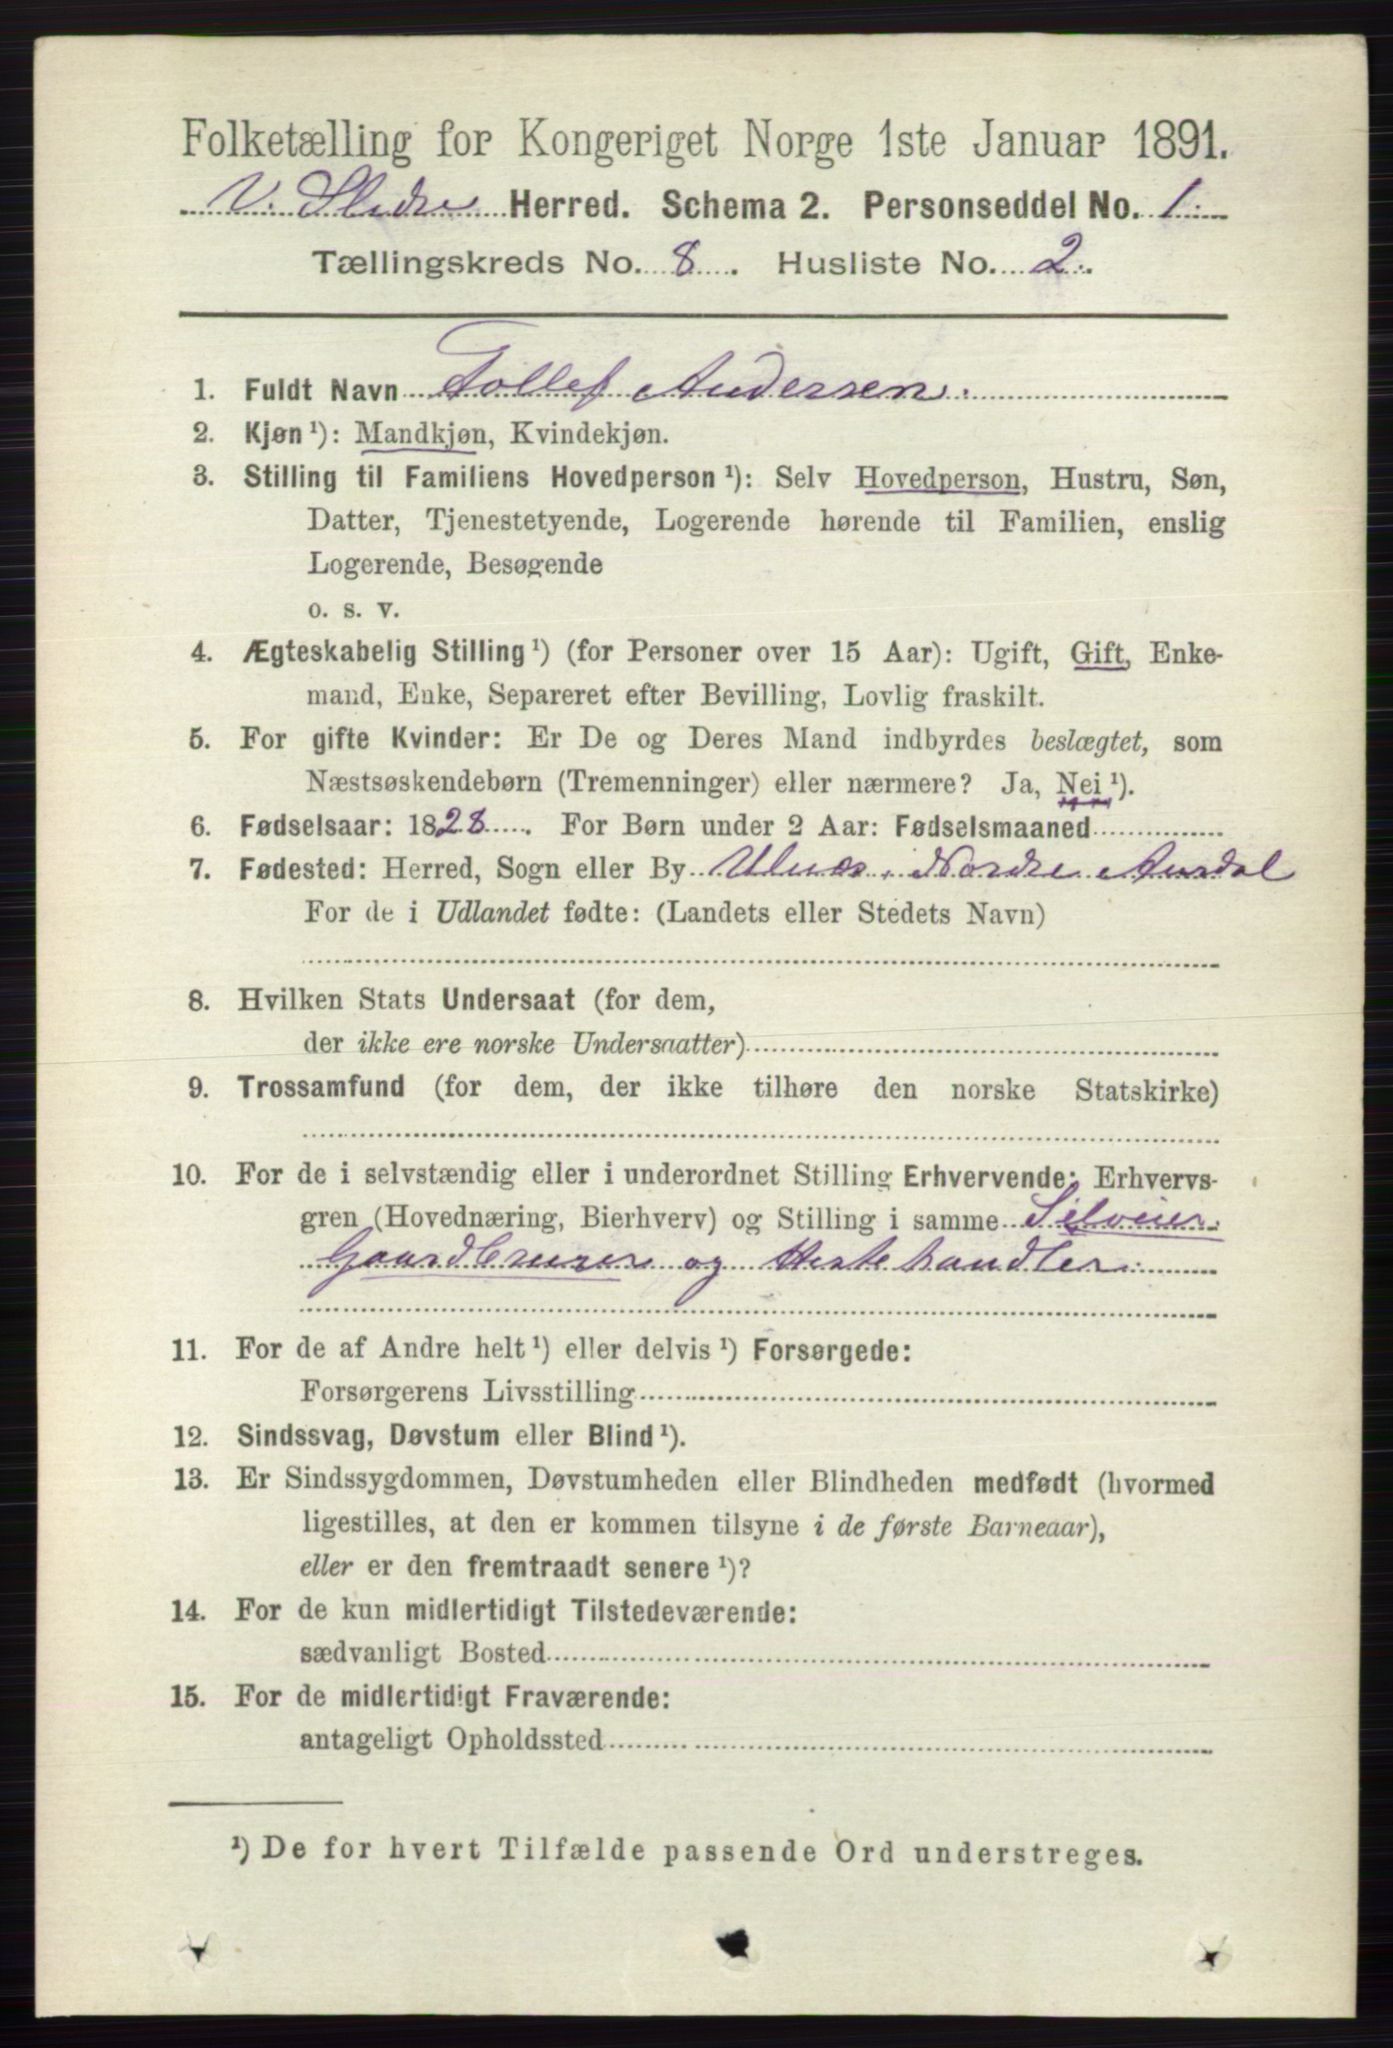 Folketælling for Kongeriget Norge 1ste Januar 1891.
V. Slidre Herred. Schema 2. Personseddel No. 1.
Tællingskreds No. 8. Husliste No. 2.
1. Fuldt Navn Tollef Andersen.
2. Kjøn ¹): Mandkjøn, Kvindekjøn.
3. Stilling til Familiens Hovedperson ¹): Selv Hovedperson, Hustru, Søn,
Datter, Tjenestetyende, Logerende hørende til Familien, enslig
Logerende, Besøgende
o. s. v.
4. Ægteskabelig Stilling ¹) (for Personer over 15 Aar): Ugift, Gift, Enke-
mand, Enke, Separeret efter Bevilling, Lovlig fraskilt.
5. For gifte Kvinder: Er De og Deres Mand indbyrdes beslægtet, som
Næstsøskendebørn (Tremenninger) eller nærmere? Ja, Nei ¹).
6. Fødselsaar: 1828. For Børn under 2 Aar: Fødselsmaaned
7. Fødested: Herred, Sogn eller By Ulnæs, Nordre Aurdal
For de i Udlandet fødte: (Landets eller Stedets Navn)
8. Hvilken Stats Undersaat (for dem,
der ikke ere norske Undersaatter)
9. Trossamfund (for dem, der ikke tilhøre den norske Statskirke)
10. For de i selvstændig eller i underordnet Stilling Erhvervende: Erhvervs-
gren (Hovednæring, Bierhverv) og Stilling i samme Selveier
Gaardbruger og Hestehandler.
11. For de af Andre helt ¹) eller delvis ¹) Forsørgede:
Forsørgerens Livsstilling
12. Sindssvag, Døvstum eller Blind ¹).
13. Er Sindssygdommen, Døvstumheden eller Blindheden medfødt (hvormed
ligestilles, at den er kommen tilsyne i de første Barneaar),
eller er den fremtraadt senere ¹)?
14. For de kun midlertidigt Tilstedeværende:
sædvanligt Bosted
15. For de midlertidigt Fraværende:
antageligt Opholdssted
¹) De for hvert Tilfælde passende Ord understreges.